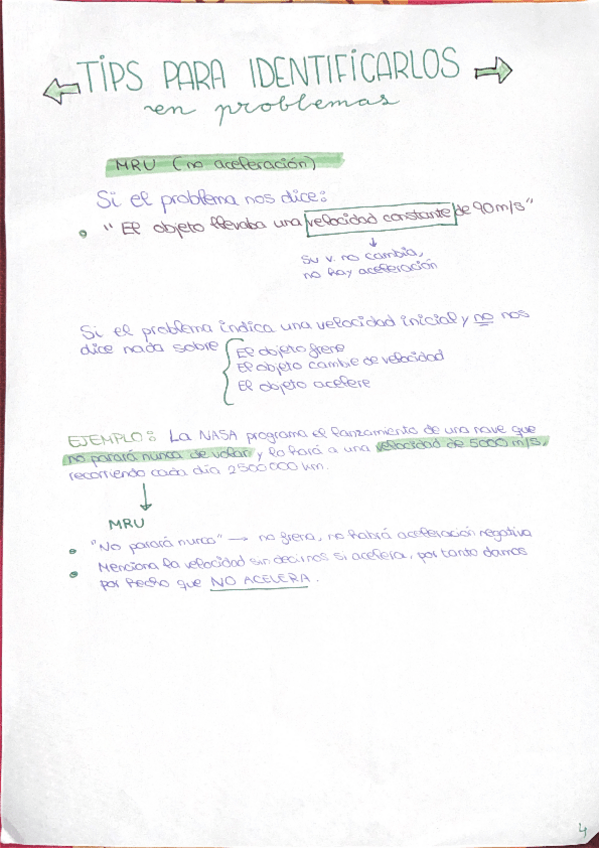 TIPS PARA IDENTIFICARLOS
en problemas
MRU (no aceleración)
Si el problema nos dice:
• "El objeto llevaba una velocidad constante de 90 m/s"
Su v. no cambia,
no hay aceleración
Si el problema indica una velocidad inicial y no nos
dice nada sobre
El objeto frene
El objeto cambie de velocidad
El objeto acelere
EJEMPLO: La NASA programa el lanzamiento de una nave que
no parará nunca de volar y lo hará a una velocidad de 5000 m/s,
recorriendo cada día 2500000 km.
MRU
• "No parará nunca" → no frena, no habrá aceleración negativa
• Menciona la velocidad sin decirnos si acelera, por tanto damos
por hecho que NO ACELERA.
4